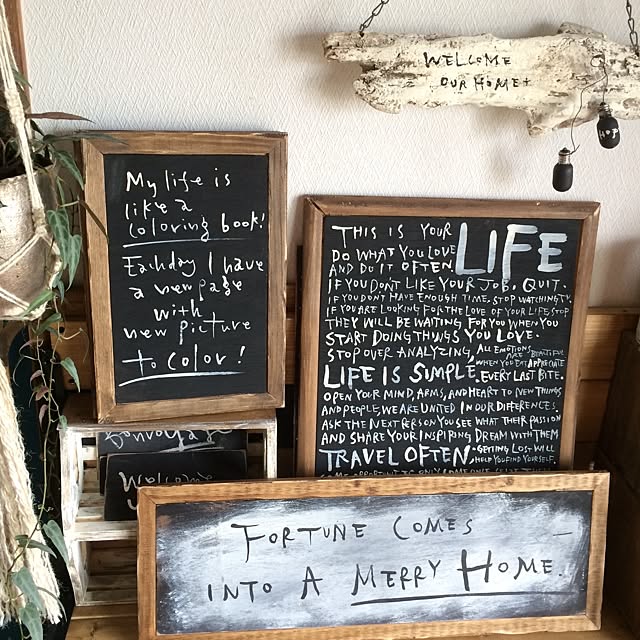 WELCOME
OUR HOME+
HOP
My life is
like a
coloring book!
Eachday I have
a new page
with
new picture
to color!
THIS IS YOUR LIFE
DO WHAT YOU LOVE
AND DO IT OFTEN.
IF YOU DON'T LIKE YOUR JOB, QUIT.
IF YOU DON'T HAVE ENOUGH TIME, STOP WATCHING TV.
IF YOU ARE LOOKING FOR THE LOVE OF YOUR LIFE, STOP
THEY WILL BE WAITING FOR YOU WHEN YOU
START DOING THINGS YOU LOVE.
STOP OVER ANALYZING, ALL EMOTIONS ARE BEAUTIFUL
WHEN YOU EAT, APPRECIATE
LIFE IS SIMPLE. EVERY LAST BITE.
OPEN YOUR MIND, ARMS, AND HEART TO NEW THINGS
AND PEOPLE, WE ARE UNITED IN OUR DIFFERENCES.
ASK THE NEXT PERSON YOU SEE WHAT THEIR PASSION
AND SHARE YOUR INSPIRING DREAM WITH THEM
TRAVEL OFTEN; GETTING LOST WILL
HELP YOU FIND YOURSELF.
Welcome
FORTUNE COMES
INTO A MERRY HOME.